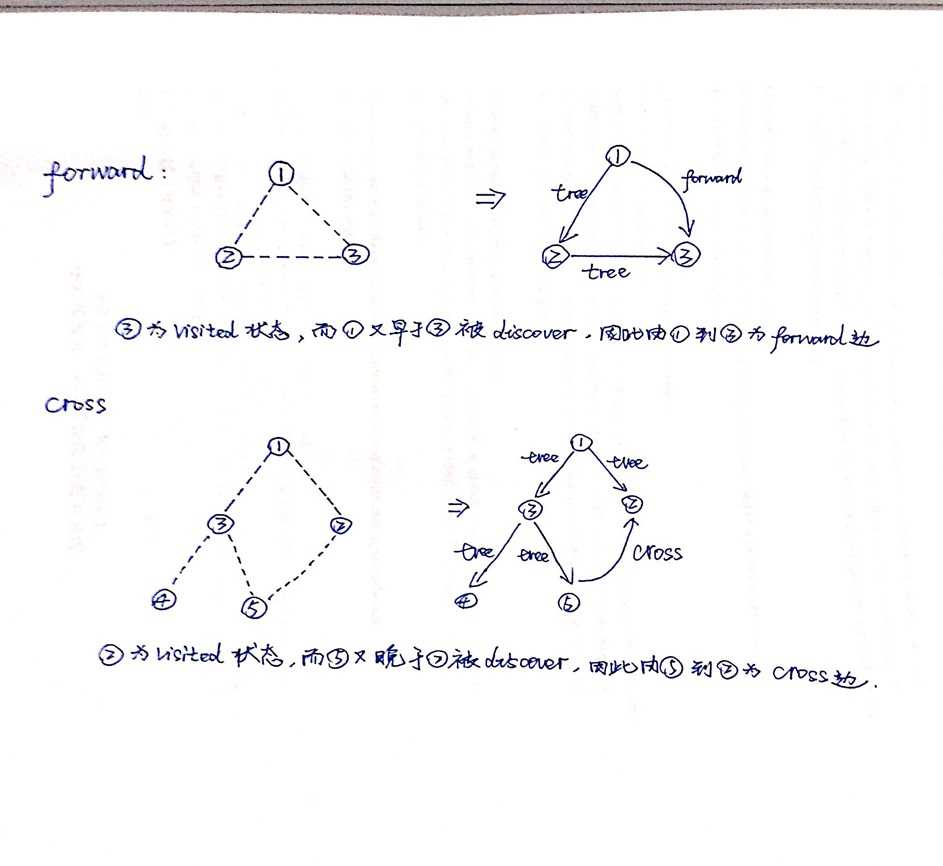 forward:
①
①
tree
forward
②
③
②
③
tree
③为visited状态,而①又早于③被discover,因此由①到③为forward边
cross
①
①
tree
tree
③
②
③
②
tree
tree
cross
④
⑤
④
⑤
②为visited状态,而⑤又晚于②被discover,因此由⑤到②为cross边.